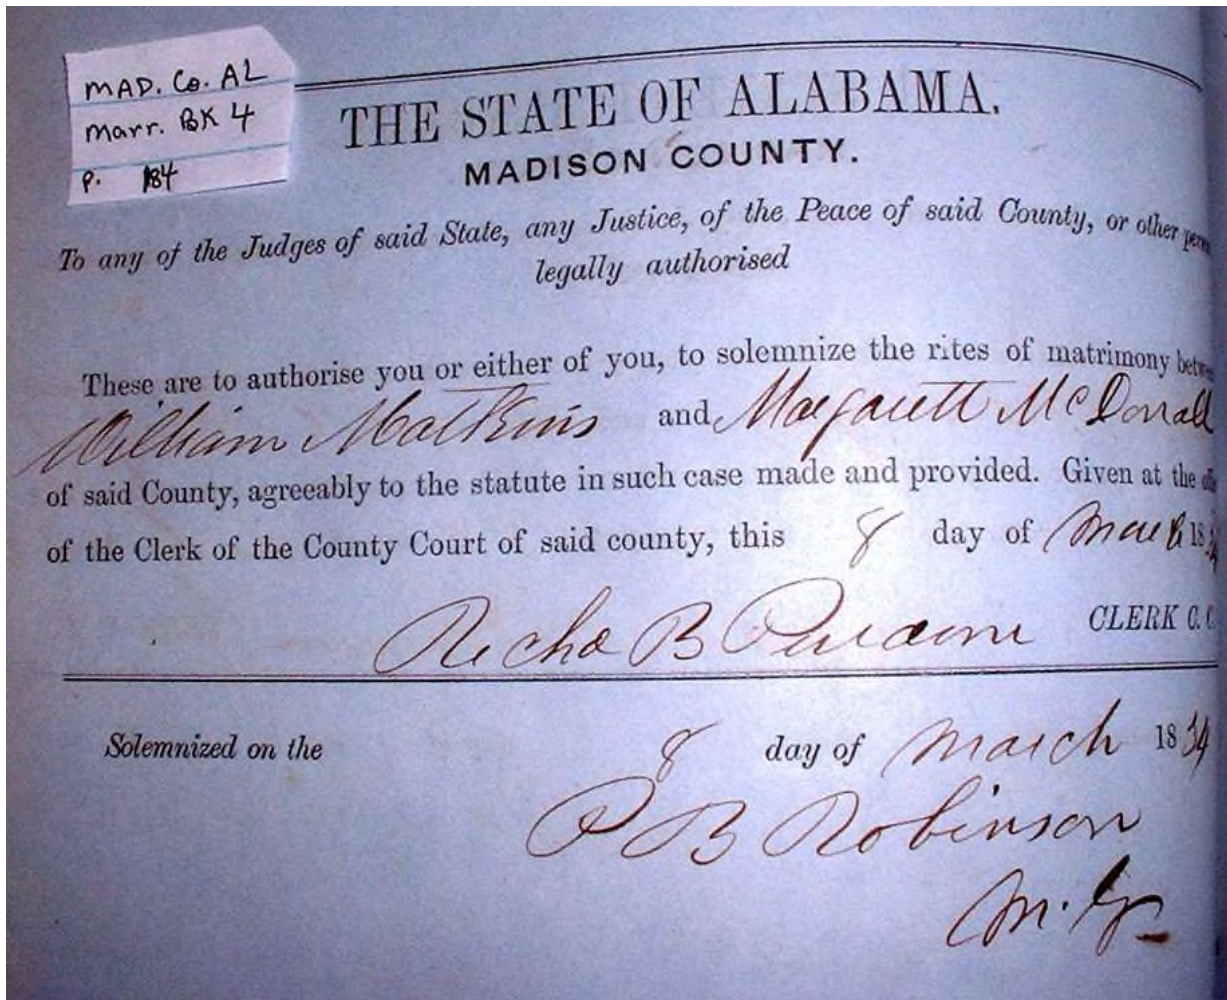 MAD. Co. AL
Marr. BK 4
P. 184
THE STATE OF ALABAMA.
MADISON COUNTY.
To any of the Judges of said State, any Justice, of the Peace of said County, or other
legally authorised
These are to authorise you or either of you, to solemnize the rites of matrimony
William Matkins and Margarett McDonall
of said County, agreeably to the statute in such case made and provided. Given at the
of the Clerk of the County Court of said county, this 8 day of March 18
B CLERK C. C.
Solemnized on the 8 day of March 1834
P B Robinson
M. G.